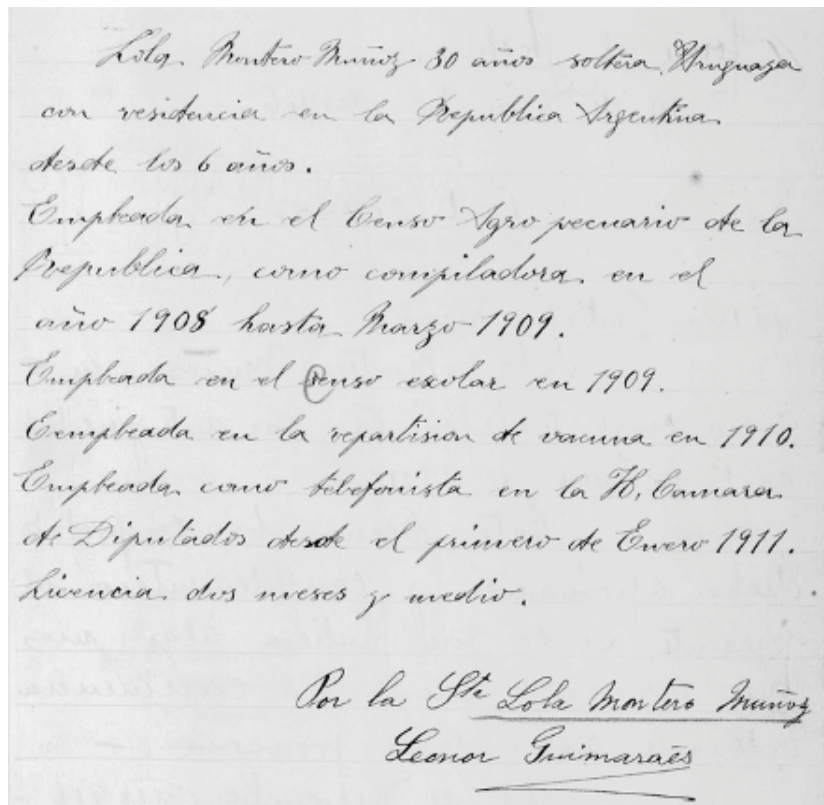 Lola Montero Muñoz 30 años soltera, Uruguaya
con residencia en la Republica Argentina
desde los 6 años.
Empleada en el Censo Agro pecuario de la
Republica, como compiladora en el
año 1908 hasta Marzo 1909.
Empleada en el Censo escolar en 1909.
Eempleada en la repartision de vacuna en 1910.
Empleada como telefonista en la H, Camara
de Diputados desde el primero de Enero 1911.
Licencia dos meses y medio.
Por la Sta Lola Montero Muñoz
Leonor Guimaraës